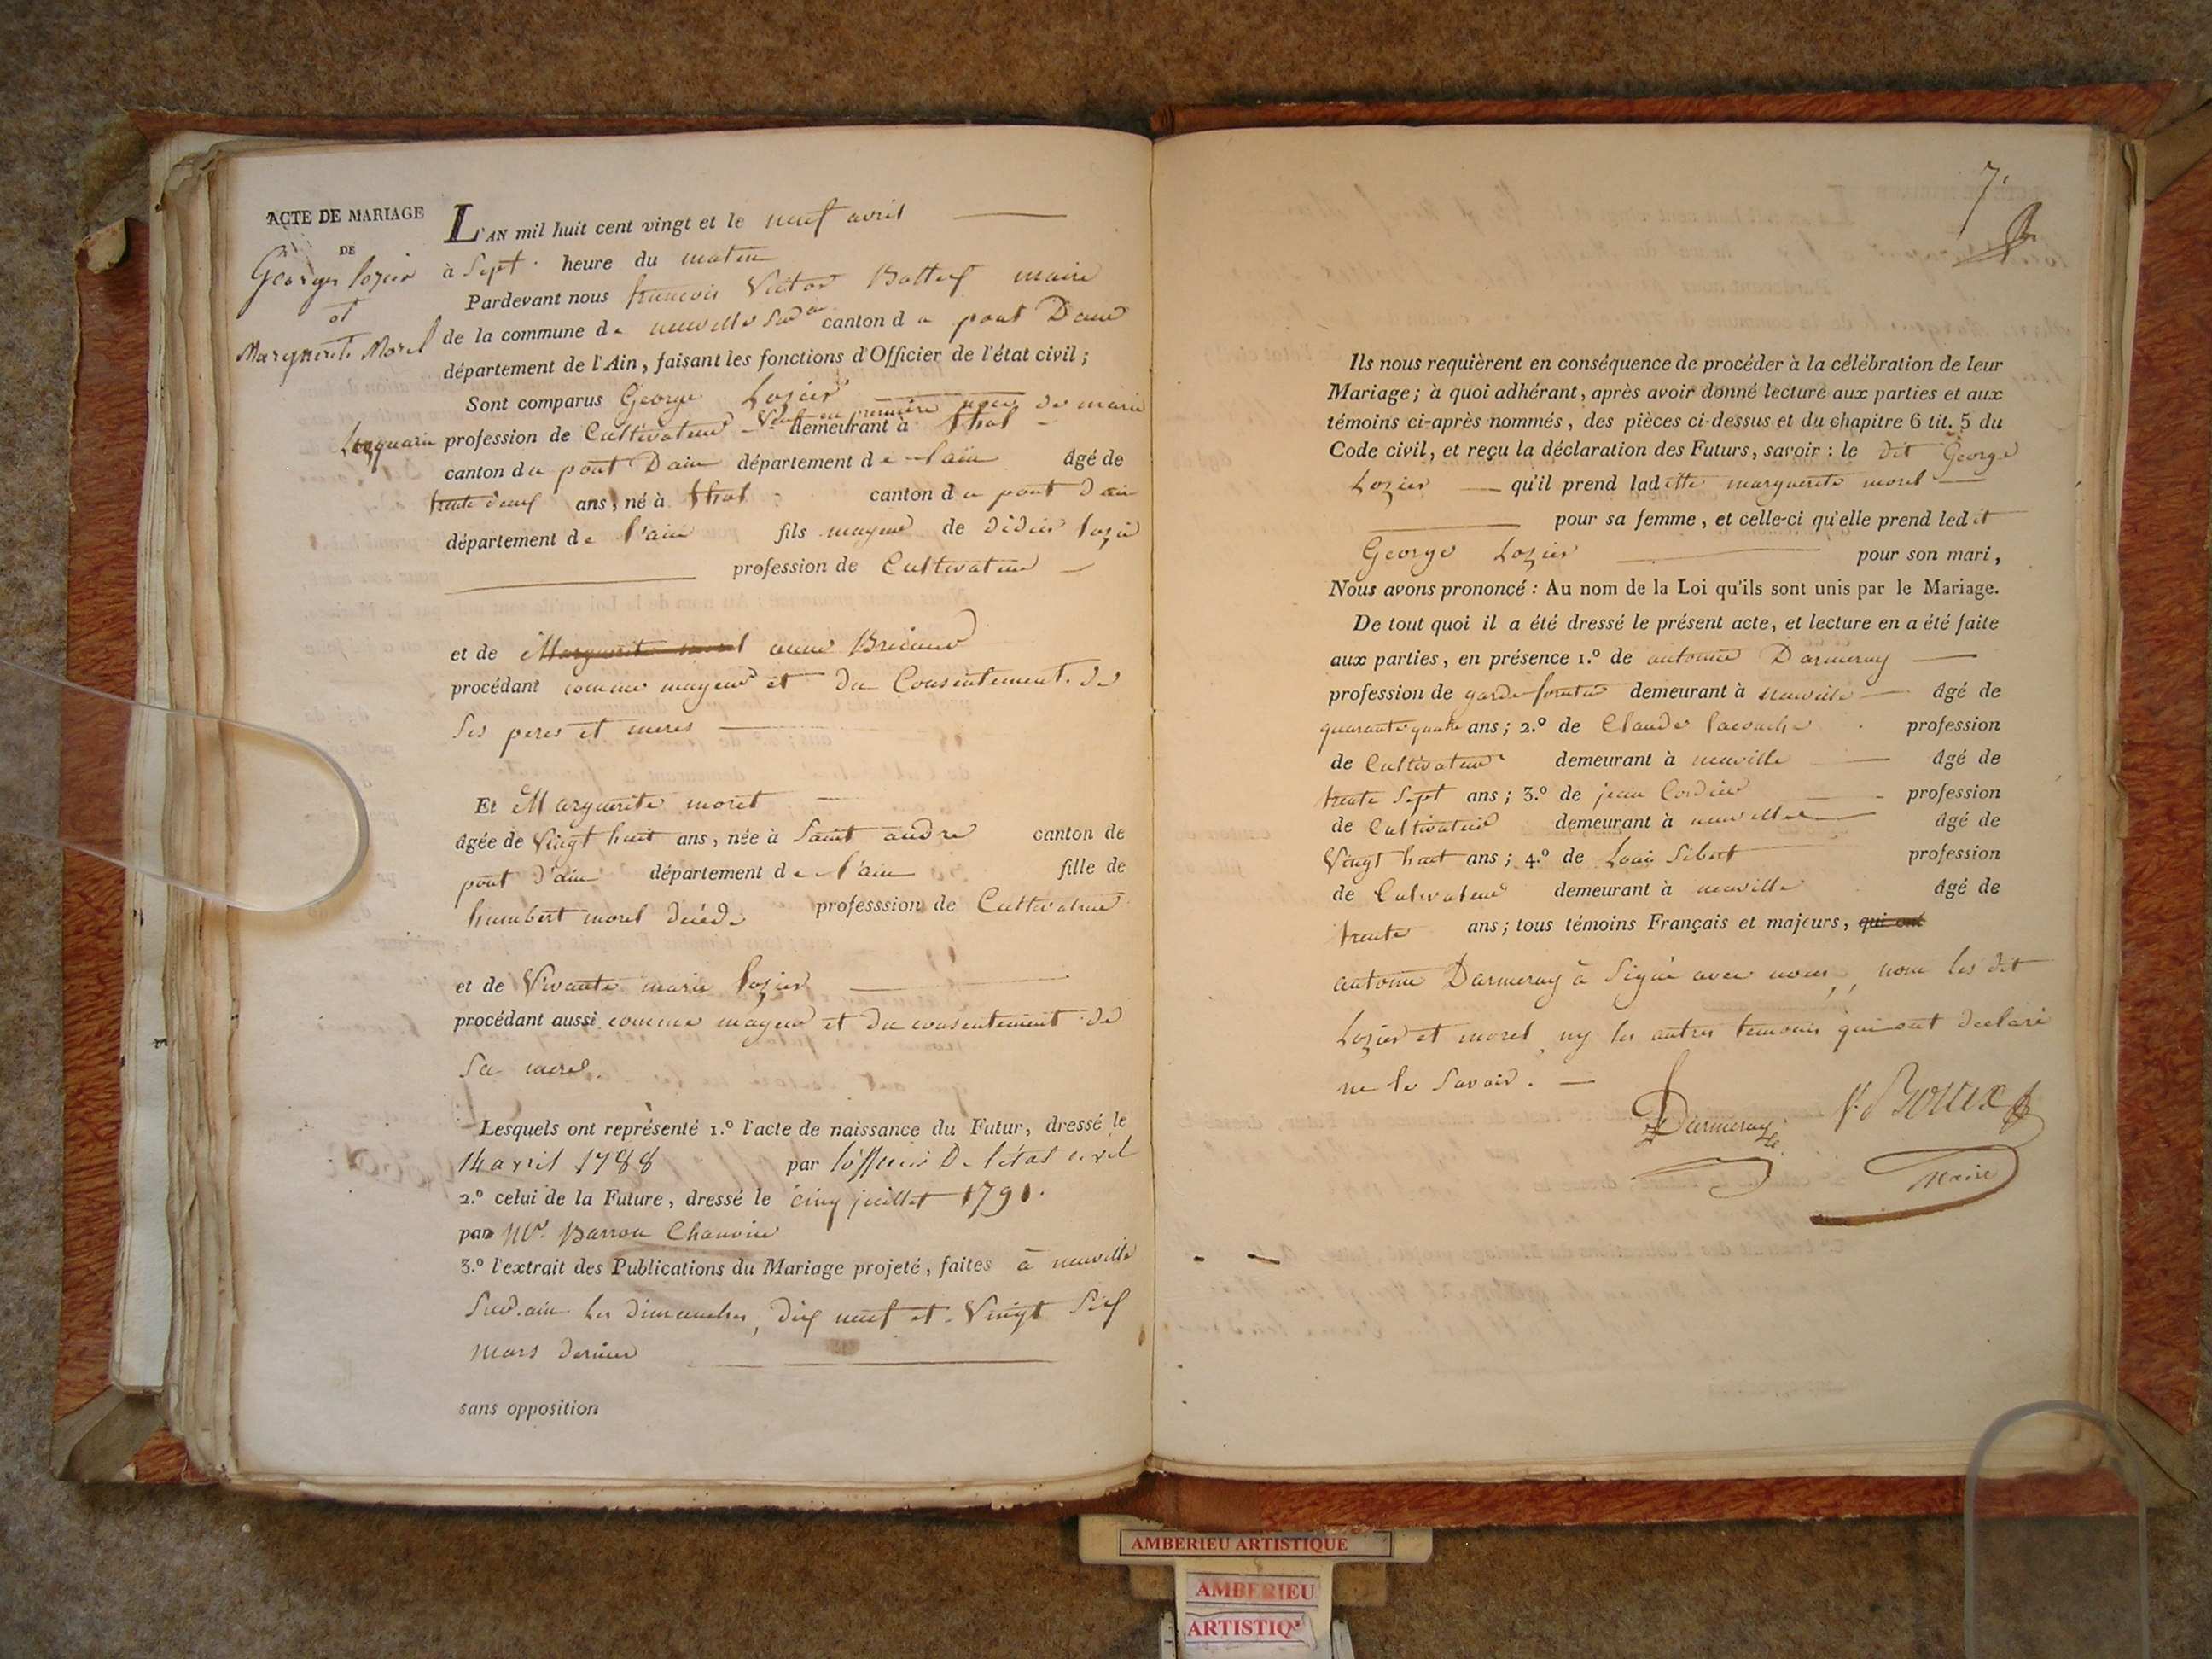 ACTE DE MARIAGE
DE
Georges lozier
et
Marguerite Morel
L'AN mil huit cent vingt et le neuf avril
à Sept heure du matin
Pardevant nous francois Victor maire
de la commune de neuville Sur ain canton du pont Dain
département de l'Ain, faisant les fonctions d'Officier de l'état civil;
Sont comparus George Lozier veuf en première noces de marie
profession de Cultivateur demeurant à thol
canton du pont Dain département de lain âgé de
trente deux ans, né à thol canton du pont dain
département de l'ain fils mayeur de didier lozier
profession de Cultivateur
et de Marguerite morel anne
procédant comme mayeur et du Consentement de
Ses peres et meres
Et Marguerite morel
âgée de Vingt huit ans, née à Saint andré canton de
pont d'ain département de l'ain fille de
humbert morel décédé professsion de Cultivateur
et de Vivante marie lozier
procédant aussi comme mayeur et du consentement de
Sa mere.
Lesquels ont représenté 1.º l'acte de naissance du Futur, dressé le
14 avril 1788 par l'officier De l'état civil
2.º celui de la Future, dressé le cinq juillet 1791.
par Mr. Barrou Chanoine
3.º l'extrait des Publications du Mariage projeté, faites à neuville
Sur ain les dimanches, dix neuf et Vingt Six
mars dernier
sans opposition
7.
Ils nous requièrent en conséquence de procéder à la célébration de leur
Mariage; à quoi adhérant, après avoir donné lecture aux parties et aux
témoins ci-après nommés, des pièces ci-dessus et du chapitre 6 tit. 5 du
Code civil, et reçu la déclaration des Futurs, savoir: le dit George
Lozier qu'il prend laditte marguerite morel
pour sa femme, et celle-ci qu'elle prend ledit
George Lozier pour son mari,
Nous avons prononcé: Au nom de la Loi qu'ils sont unis par le Mariage.
De tout quoi il a été dressé le présent acte, et lecture en a été faite
aux parties, en présence 1.º de antoine Darmeray
profession de garde forestier demeurant à neuville âgé de
quarante quatre ans; 2.º de Claude profession
de Cultivateur demeurant à neuville âgé de
trente Sept ans; 3.º de jean Cordier profession
de Cultivateur demeurant à neuville âgé de
Vingt huit ans; 4.º de Louis Sibert profession
de Cultivateur demeurant à neuville âgé de
trente ans; tous témoins Français et majeurs, qui ont
antoine Darmeray à Signé avec nous, non les dit
Lozier et morel, ny les autres temoins qui ont declaré
ne le Savoir.
Darmeray
maire
AMBERIEU ARTISTIQUE
AMBERIEU
ARTISTIQ